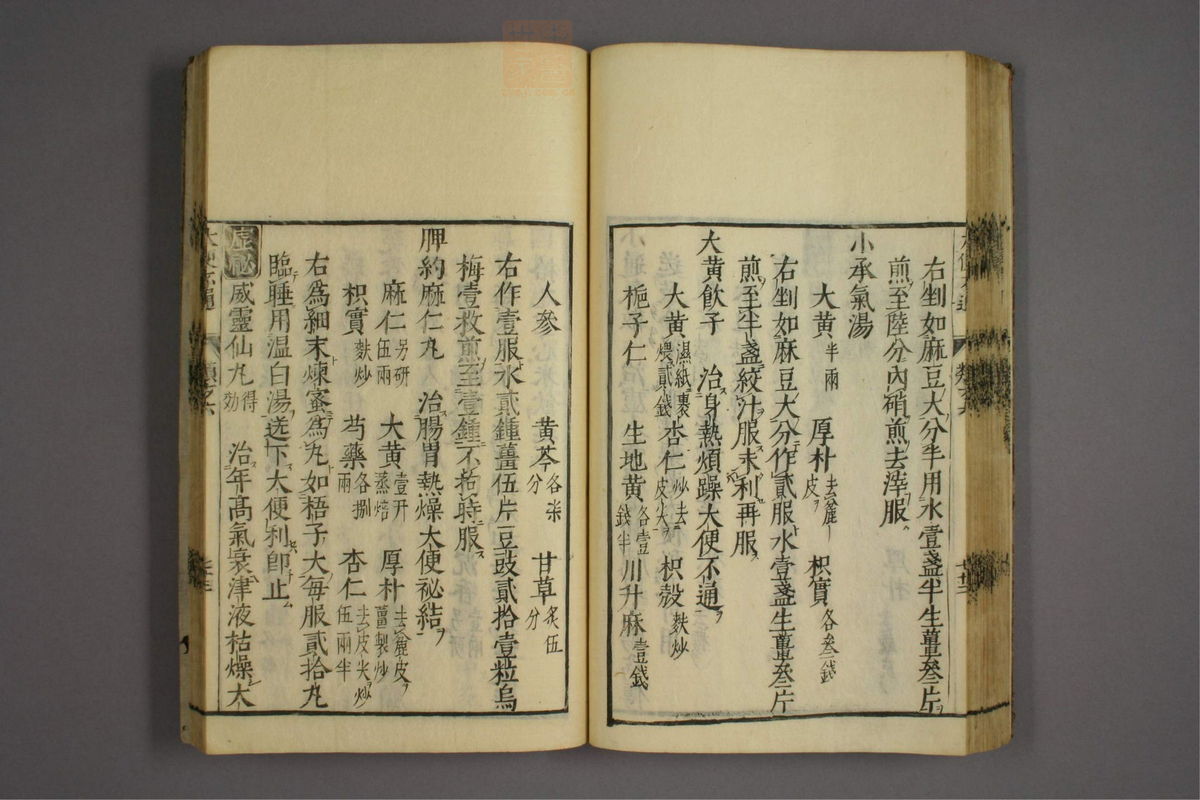 右剉如麻豆大分半用水壹盞半生薑叁片
煎至陸分內硝煎去滓服
小承氣湯
大黃半兩 厚朴去麄皮 枳實各叁錢
右剉如麻豆大分作貳服水壹盞生薑叁片
煎至半盞絞汁服未利再服
大黃飲子 治身熱煩躁大便不通
大黃濕紙裹煨貳錢 杏仁炒去皮尖 枳殼麩炒
梔子仁 生地黃各壹錢半 川升麻壹錢
人參 黃芩各柒分 甘草炙伍分
右作壹服水貳鍾薑伍片豆豉貳拾壹粒烏
梅壹枚煎至壹鍾不拘時服
脾約麻仁丸 治腸胃熱燥大便祕結
麻仁另研伍兩 大黃壹斤蒸焙 厚朴去麄皮薑製炒
枳實麩炒 芍藥各捌兩 杏仁去皮尖炒伍兩半
右爲細末煉蜜爲丸如梧子大每服貳拾丸
臨睡用溫白湯送下大便利卽止
虛祕 威靈仙丸得効 治年高氣衰津液枯燥大